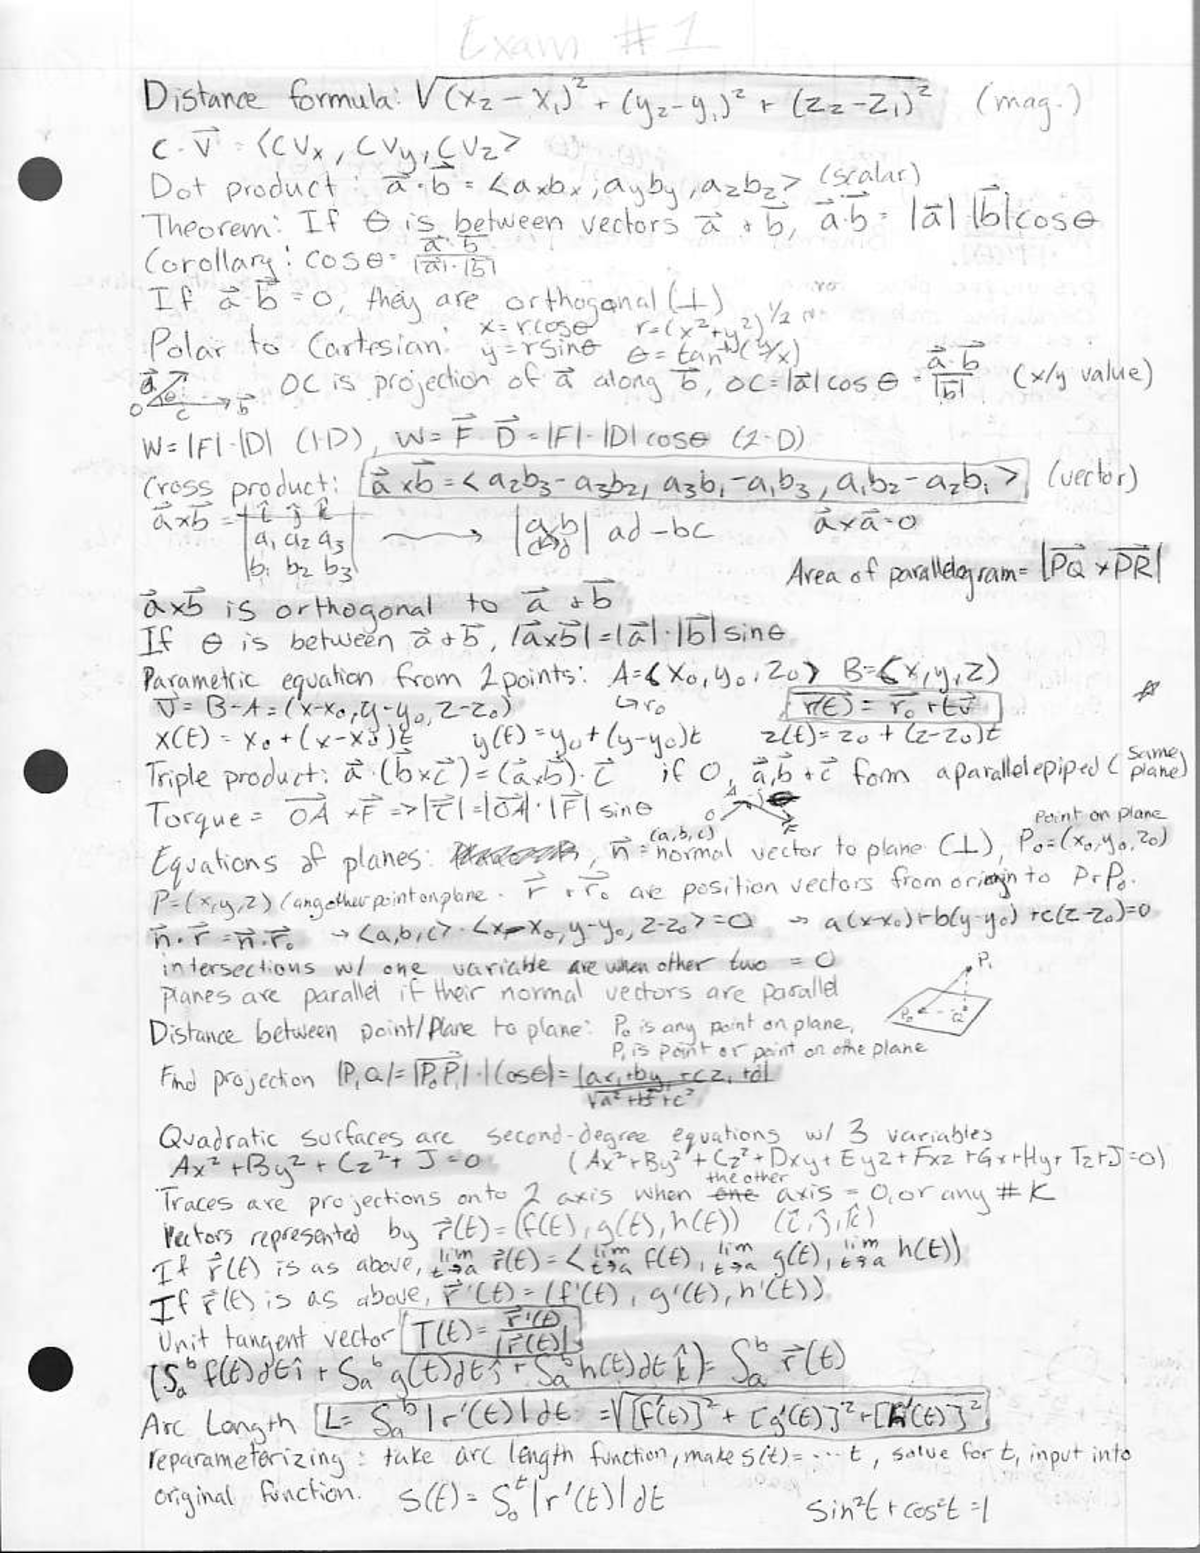 Exam #1
Distance formula: √(x₂-x₁)² + (y₂-y₁)² + (z₂-z₁)² (mag.)
c·v⃗ = <cvx, cvy, cvz>
Dot product: a⃗·b⃗ = <axbx, ayby, azbz> (scalar)
Theorem: If θ is between vectors a⃗ + b⃗, a⃗·b⃗ = |a⃗| |b⃗|cosθ
Corollary: cosθ = a⃗·b⃗/|a⃗|·|b⃗|
If a⃗·b⃗ = 0, they are orthogonal (⊥)
Polar to Cartesian: x=rcosθ y=rsinθ r=(x²+y²)^1/2 θ=tan⁻¹(y/x)
a⃗ θ O C b⃗ OC is projection of a⃗ along b⃗, OC=|a⃗|cosθ = a⃗·b⃗/|b⃗| (x/y value)
W=|F|·|D| (1-D), W=F⃗·D⃗=|F|·|D|cosθ (2-D)
Cross product: a⃗×b⃗=<a₂b₃-a₃b₂, a₃b₁-a₁b₃, a₁b₂-a₂b₁> (vector)
a⃗×b⃗ = |î ĵ k̂ a⃗×a⃗=0
a₁ a₂ a₃ → |a b c d| ad-bc
b₁ b₂ b₃| Area of parallelogram=|PQ⃗ × PR⃗|
a⃗×b⃗ is orthogonal to a⃗ + b⃗
If θ is between a⃗ + b⃗, |a⃗×b⃗|=|a⃗|·|b⃗|sinθ
Parametric equation from 2 points: A=(x₀,y₀,z₀) B=(x,y,z)
v⃗=B-A=(x-x₀,y-y₀,z-z₀) ↳r₀ r⃗(t)=r⃗₀+tv⃗
x(t)=x₀+(x-x₀)t y(t)=y₀+(y-y₀)t z(t)=z₀+(z-z₀)t
Triple product: a⃗·(b⃗×c⃗)=(a⃗×b⃗)·c⃗ if 0, a⃗,b⃗+c⃗ form a parallelepiped (same plane)
Torque = OA⃗ × F⃗ => |τ⃗|=|OA⃗|·|F⃗|sinθ
Equations of planes: n⃗=(a,b,c) normal vector to plane (⊥), point on plane P₀=(x₀,y₀,z₀)
P=(x,y,z) (any other point on plane. r⃗ + r⃗₀ are position vectors from origin to P+P₀.
n⃗·r⃗=n⃗·r⃗₀ → <a,b,c>·<x-x₀,y-y₀,z-z₀>=0 → a(x-x₀)+b(y-y₀)+c(z-z₀)=0
intersections w/ one variable are when other two = 0
planes are parallel if their normal vectors are parallel
Distance between point/plane to plane: P₀ is any point on plane,
P₁ is point or point on othe plane
P₁ P₀ Q
Find projection |P₁Q|=|P₀P₁⃗|·|cosθ|=|ax₁+by₁+cz₁+d|/√a²+b²+c²
Quadratic surfaces are second-degree equations w/ 3 variables
Ax²+By²+Cz²+J=0 (Ax²+By²+Cz²+Dxy+Eyz+Fxz+Gx+Hy+Iz+J=0)
Traces are projections onto 2 axis when the other axis = 0, or any # K
Vectors represented by r⃗(t)=(f(t),g(t),h(t)) (î,ĵ,k̂)
If r⃗(t) is as above, lim t→a r⃗(t)=<lim t→a f(t), lim t→a g(t), lim t→a h(t)>
If r⃗(t) is as above, r⃗'(t)=(f'(t), g'(t), h'(t))
Unit tangent vector T(t)=r⃗'(t)/|r⃗'(t)|
[∫ₐᵇf(t)dtî + ∫ₐᵇg(t)dtĵ + ∫ₐᵇh(t)dtk̂]=∫ₐᵇr⃗(t)
Arc Length L=∫ₐᵇ|r'(t)|dt =√[f'(t)]²+[g'(t)]²+[h'(t)]²
reparameterizing: take arc length function, make s(t)=...t, solve for t, input into
original function. s(t)=∫₀ᵗ|r'(t)|dt sin²t+cos²t=1